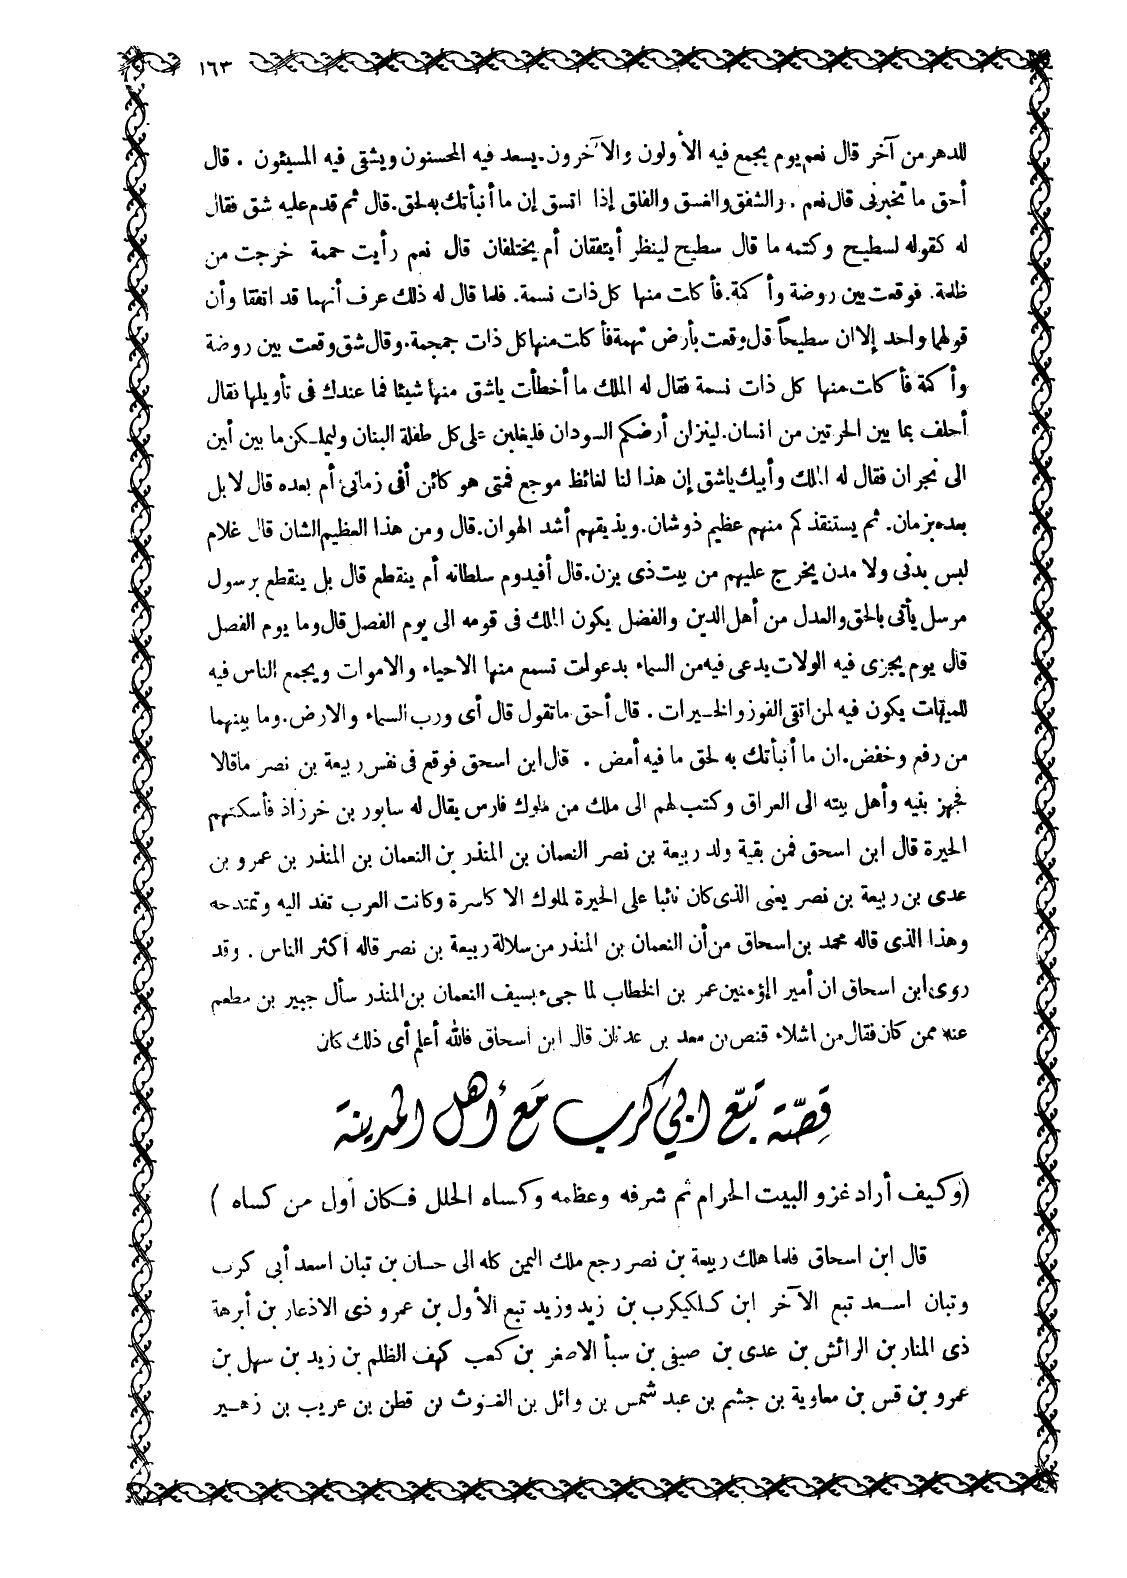 ١٦٣
للدهر من آخر قال نعم يوم يجمع فيه الأولون والآخرون. يسعد فيه المحسنون ويشقى فيه المسيئون . قال
أحق ما تخبرنى قال نعم . والشفق والغسق والفلق إذا اتسق إن ما أنبأتك به لحق. قال ثم قدم عليه شق فقال
له كقوله لسطيح وكتمه ما قال سطيح لينظر أيتفقان أم يختلفان قال نعم رأيت حممة خرجت من
ظلمة. فوقعت بين روضة وأكمة. فأكلت منها كل ذات نسمة. فلما قال له ذلك عرف أنهما قد اتفقا وأن
قولهما واحد إلا ان سطيحاً قال وقعت بأرض تهمة فأكلت منها كل ذات جمجمة. وقال شق وقعت بين روضة
وأكمة فأكلت منها كل ذات نسمة فقال له الملك ما أخطأت ياشق منها شيئا فما عندك فى تأويلها فقال
أحلف بما بين الحرتين من انسان. لينزلن أرضكم السودان فليغلبن على كل طفلة البنان وليملكن ما بين أبين
الى نجران فقال له الملك وأبيك ياشق إن هذا لنا لغائظ موجع فمتى هو كائن أفى زمانى أم بعده قال لا بل
بعده بزمان. ثم يستنقذكم منهم عظيم ذوشان. ويذيقهم أشد الهوان. قال ومن هذا العظيم الشان قال غلام
ليس بدنى ولا مدن يخرج عليهم من بيت ذى يزن. قال أفيدوم سلطانه أم ينقطع قال بل ينقطع برسول
مرسل يأتى بالحق والعدل من أهل الدين والفضل يكون الملك فى قومه الى يوم الفصل قال وما يوم الفصل
قال يوم يجزى فيه الولات يدعى فيه من السماء بدعوات تسمع منها الاحياء والاموات ويجمع الناس فيه
للميقات يكون فيه لمن اتقى الفوز والخيرات . قال أحق ما تقول قال أى ورب السماء والارض. وما بينهما
من رفع وخفض. ان ما أنبأتك به لحق ما فيه أمض . قال ابن اسحق فوقع فى نفس ربيعة بن نصر ماقالا
فجهز بنيه وأهل بيته الى العراق وكتب لهم الى ملك من ملوك فارس يقال له سابور بن خرزاذ فأسكنهم
الحيرة قال ابن اسحق فمن بقية ولد ربيعة بن نصر النعمان بن المنذر بن النعمان بن المنذر بن عمرو بن
عدى بن ربيعة بن نصر يعنى الذى كان نائبا على الحيرة لملوك الاكاسرة وكانت العرب تفد اليه وتمتدحه
وهذا الذى قاله محمد بن اسحاق من أن النعمان بن المنذر من سلالة ربيعة بن نصر قاله أكثر الناس . وقد
روى ابن اسحاق ان أمير المؤمنين عمر بن الخطاب لما جىء بسيف النعمان بن المنذر سأل جبير بن مطعم
عنه ممن كان فقال من اشلاء قنص بن معد بن عدنان قال ابن اسحاق فالله أعلم أى ذلك كان
قصّة تبّع ابي كرب مَع أهل المدينة
(وكيف أراد غزو البيت الحرام ثم شرفه وعظمه وكساه الحلل فكان أول من كساه )
قال ابن اسحاق فلما هلك ربيعة بن نصر رجع ملك اليمن كله الى حسان بن تبان اسعد أبى كرب
وتبان اسعد تبع الآخر ابن كلكيكرب بن زيد وزيد تبع الأول بن عمرو ذى الاذعار بن أبرهة
ذى المنار بن الرائش بن عدى بن صيفى بن سبأ الاصغر بن كعب كهف الظلم بن زيد بن سهل بن
عمرو بن قس بن معاوية بن جشم بن عبد شمس بن وائل بن الغوث بن قطن بن عريب بن زهير